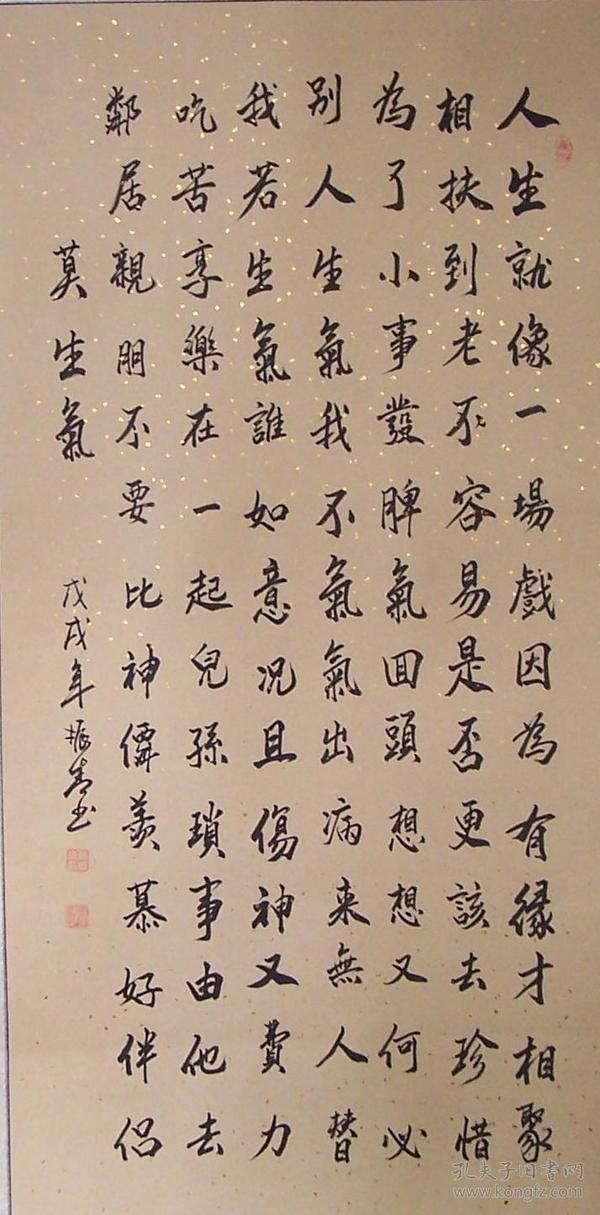 人生就像一場戲因為有緣才相聚
相扶到老不容易是否更該去珍惜
為了小事發脾氣囬頭想想又何必
别人生氣我不氣氣出病来無人替
我若生氣誰如意况且傷神又費力
吃苦享樂在一起兒孫瑣事由他去
鄰居親朋不要比神僊羡慕好伴侣
莫生氣
戊戌年振青书
孔夫子旧书网
www.kongfz.com